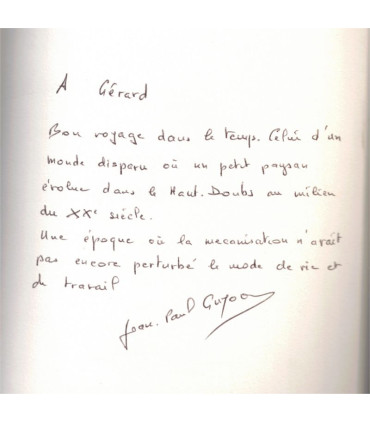 A Gérard
Bon voyage dans le temps. Celui d'un
monde disparu où un petit paysan
évolue dans le Haut-Doubs au milieu
du XXe siècle.
Une époque où la mécanisation n'avait
pas encore perturbé le mode de vie et
de travail
Jean-Paul